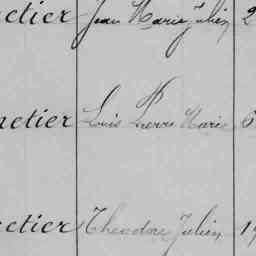 ctier Jean Marie Julien 2
netier Louis Pierre Marie 6
ctier Theodore Julien 19